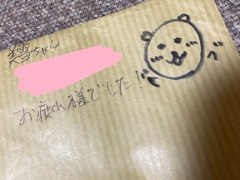 ちゃん
お疲れ様でした!